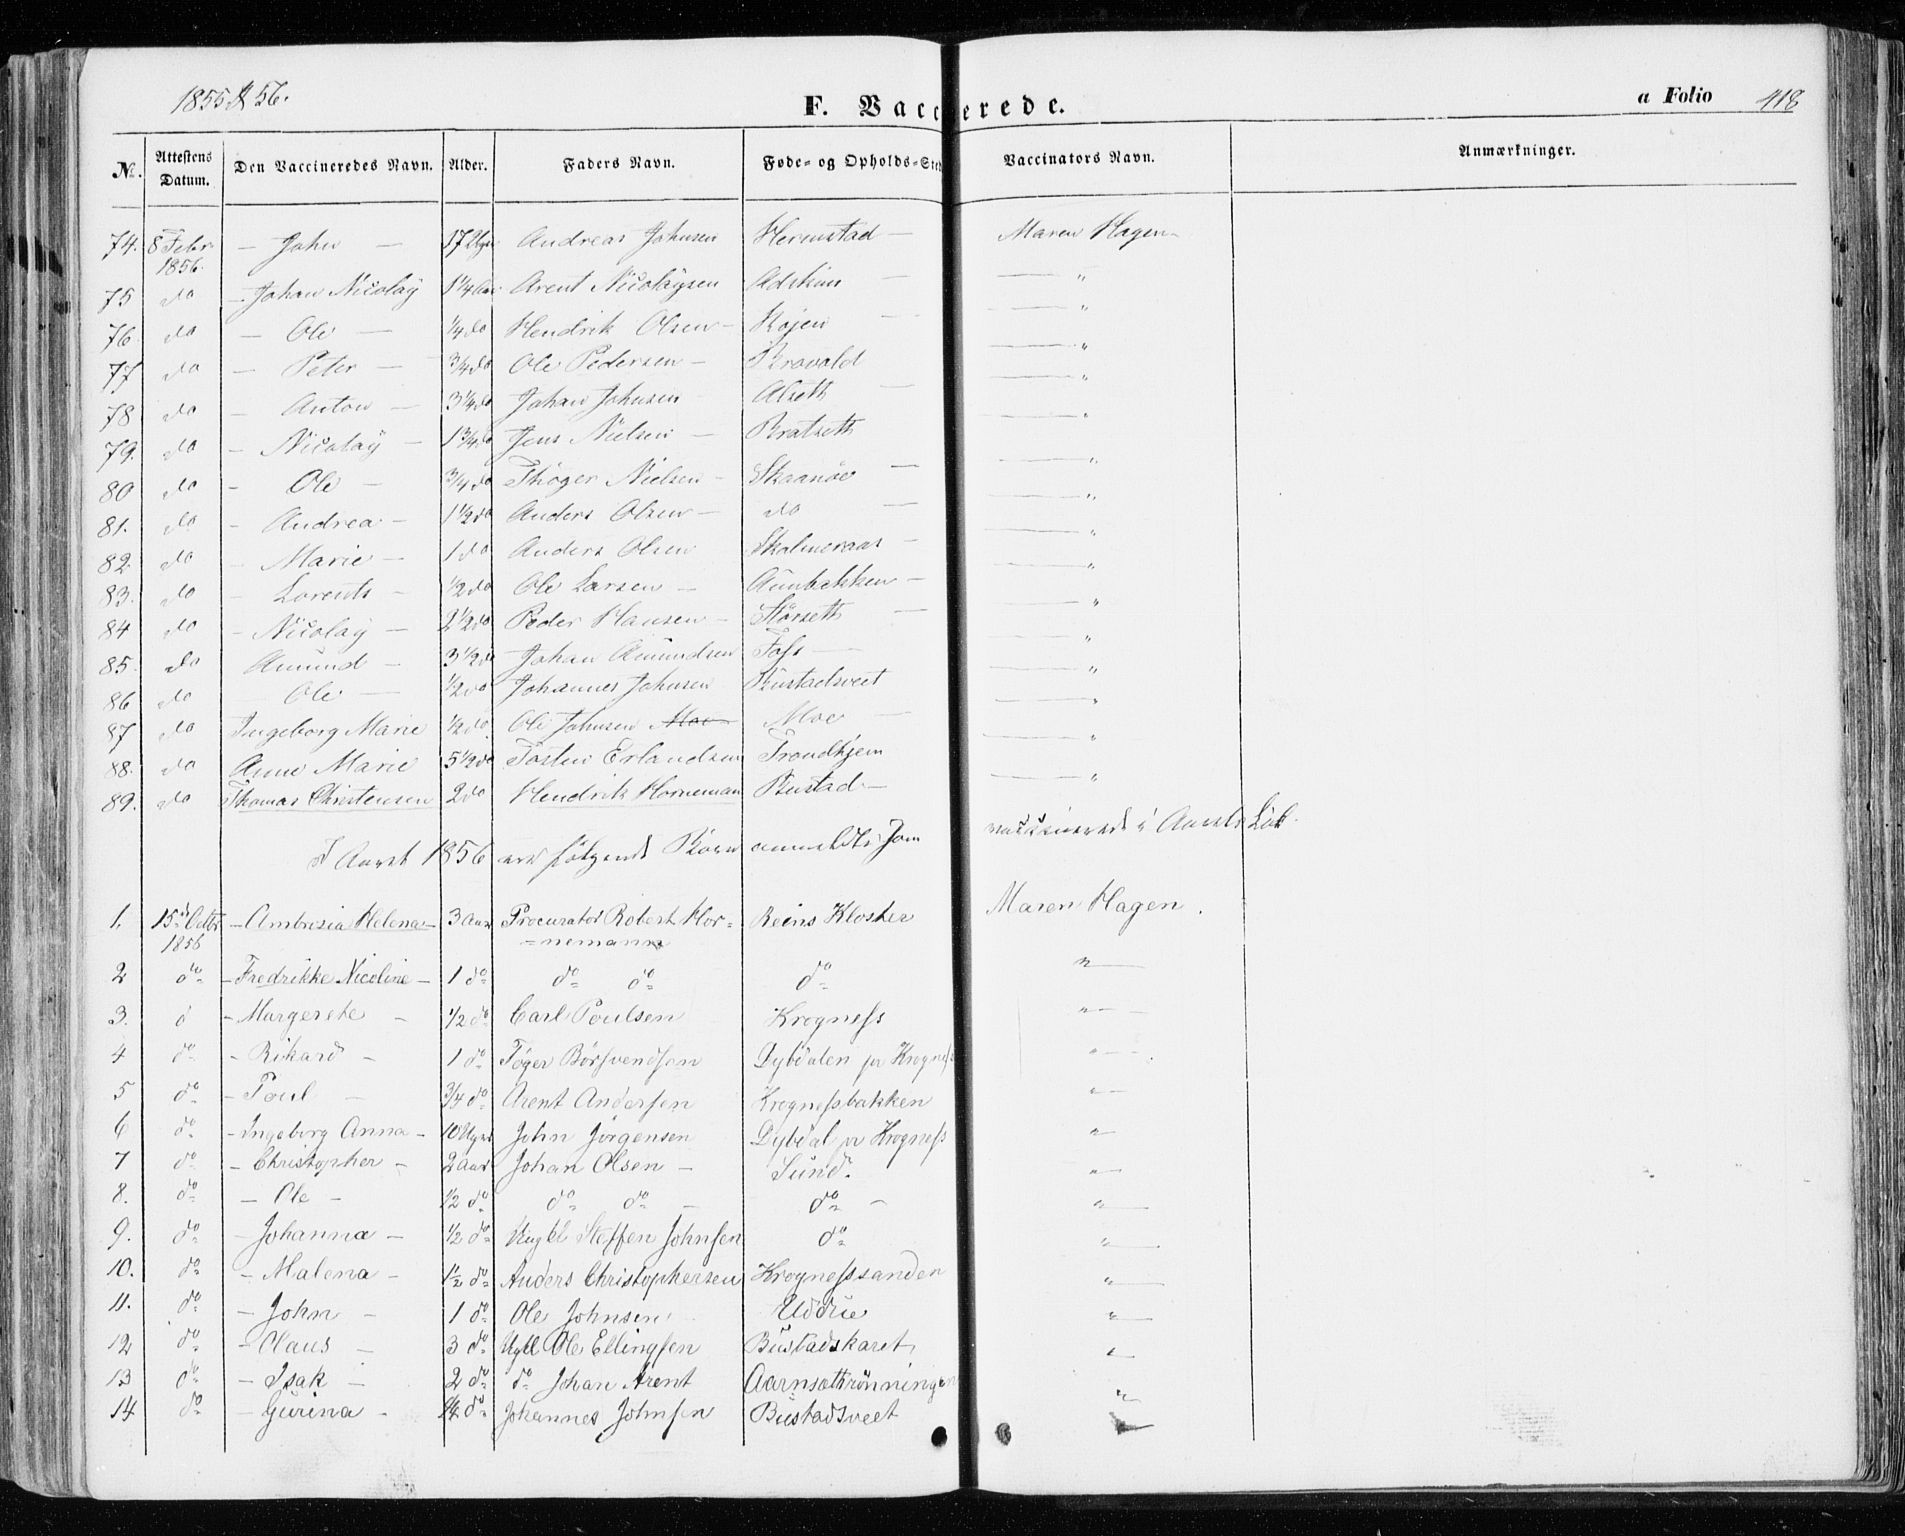 1855 & 56.
F. Vaccinerede.
a Folio 418
No. Attestens Datum. Den Vaccineredes Navn. Alder. Faders Navn. Føde- og Opholds-Sted Vaccinators Navn. Anmærkninger.
74. 8 Febr 1856. – John – 17 Uger Andreas Johnsen Hermstad – Maren Hagen –
75 do – Johan Nicolaÿ 1 1/4 Aar Arent Nicolaÿsen Adskin – — "
76 do – Ole – 1/4 do Hendrik Olsen – Kojen – — "
77 do – Peter – 3/4 do Ole Pedersen – Kravald — "
78 do – Anton – 3 1/4 do Johan Johnsen Alseth – — "
79. do – Nicolaÿ – 1 3/4 do Jens Nielsen – Bratseth — "
80 do – Ole – 3/4 do Thöger Nielsen – Skaanöe – — "
81. do – Andrea – 1 1/2 do Anders Olsen – do – — "
82. do – Marie – 1 do Anders Olsen Skalmeraas – — "
83. do – Lorents – 1/2 do Ole Larsen – Aünbakken – — "
84 do – Nicolaÿ – 2 1/2 do Peder Hansen – Störseth – — "
85. do Amünd – 3 1/2 do Johan Amündsen Foss — — "
86 do – Ole – 1/2 do Johannes Johnsen Büstadsveet — "
87 do Ingeborg Marie 1/2 do Ole Johnsen Moe Moe – — "
88. do Anne Marie 5 1/2 do Tosten Erlandsen Trondhjem — "
89. do Thomas Christensen 2 do Hendrik Horneman Bustad – — "
I Aaret 1856 ere følgende Børn anmeldte som vaccinerede i Aarets Løb.
1. 15de Octbr 1856 – Ambrosia Helena – 3 Aar Procurator Robert Hor= Reins Kloster Maren Hagen.
=nemann
2 do – Fredrikke Nicoline – 1 do do do do " —
3. d – Margerete – 1/2 do Carl Poulsen Krogness " —
4 do – Rikard – 1 do Töger Börsvendsen Dybdalen pr Krogness " —
5 do – Poul – 3/4 do Arent Andersen Krognessbakken " —
6 do – Ingeborg Anna – 10 Uger John Jörgensen Dybdal pr Krogness " —
7 do – Christopher – 2 Aar Johan Olsen – Sund. " —
8. do – Ole – 1/2 do do do – do – " —
9. do – Johanna – 1/2 do Steffen Johnsen do " —
10. do – Malena – 1 1/2 do Anders Christophersen Krognesssanden " —
11. do – John – 1 do Ole Johnsen Uddüe " —
12 do – Olaus – 3 do Ole Ellingsen Büstadskaret " —
13 do – Isak – 2 do do Johan Arent Aarnsethrönningen
14 do – Gürina – 1/4 do Johannes Johnsen Büstadsveet " —